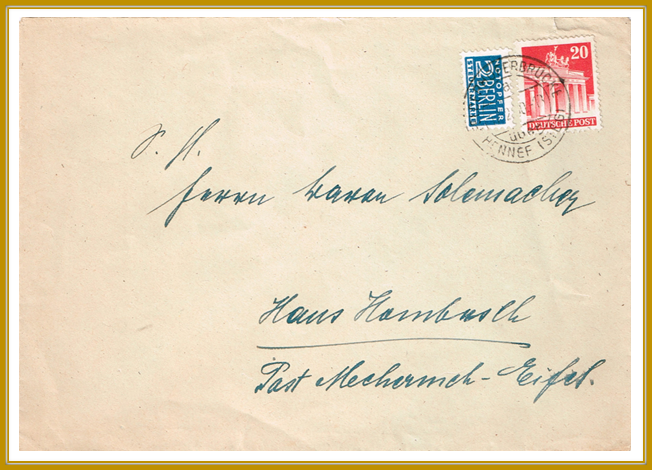 NOTOPFER
2 BERLIN
STEUERMARKE
20
DEUTSCHE POST
HENNEF (SIEG)
S. H.
Herrn Baron Solemacher
Haus Hombusch
Post Mechernich-Eifel.